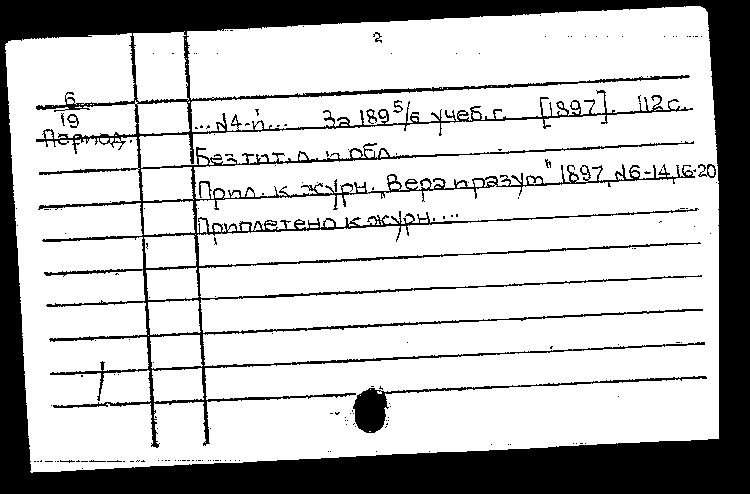 2
6
19
Период.
...№4-й... За 189 5/6 учеб. г. [1897]. 112 с.
Без тит. л. и обл.
Прил. к журн. „Вера и разум" 1897, №6-14, 16-20
Приплетено к журн. ...